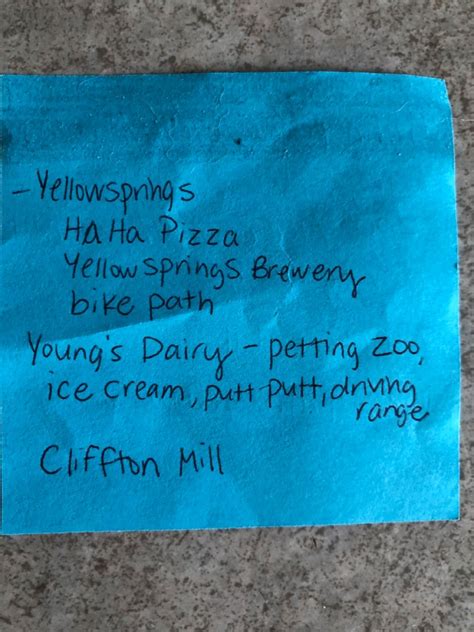 - Yellowsprings
HA Ha Pizza
Yellow Springs Brewery
bike path
Young's Dairy - petting zoo,
ice cream, putt putt, driving
range
Cliffton Mill